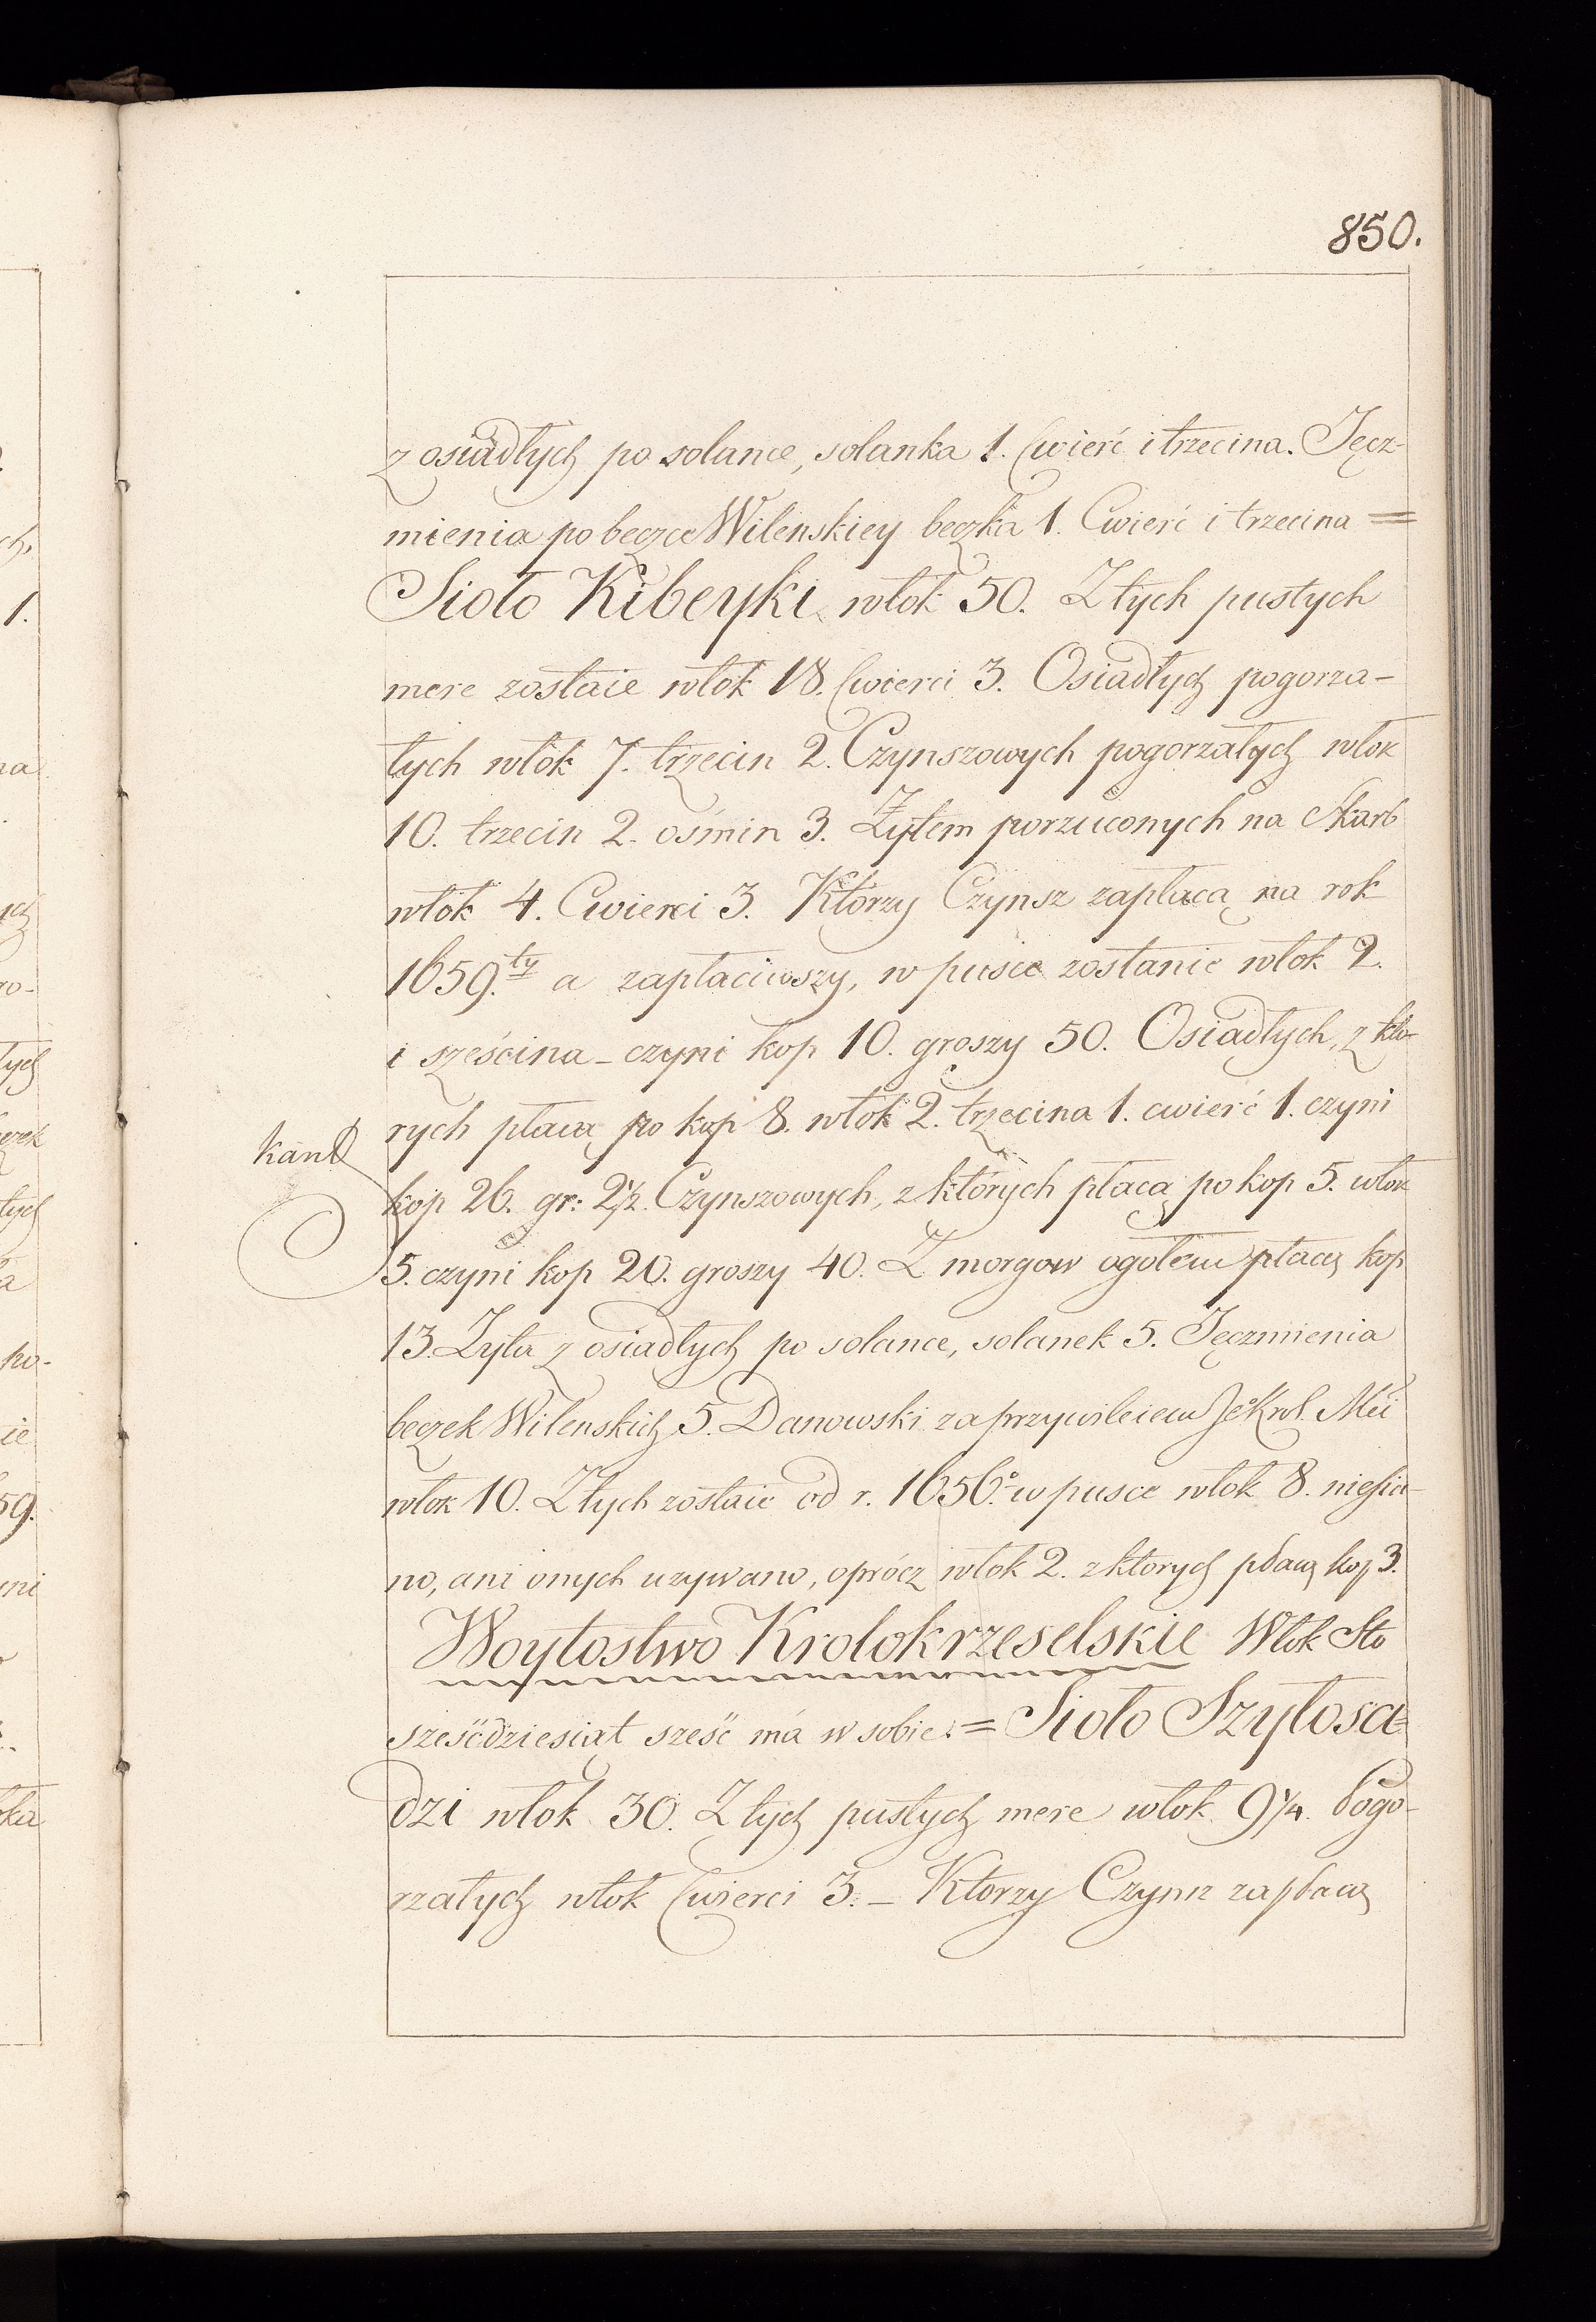 850.
z osiadłych po solance, solanka 1. Cwierć i trzecina. Jęcz-
mienia po beczce Wilenskiey beczka 1. Cwierć i trzecina =
Sioło Kibeyki włok 50. Z tych pustych
mere zostaie włok 18. Cwierci 3. Osiadłych pogorza-
łych włok 7. trzecin 2. Czynszowych pogorzałych włok
10. trzecin 2. ośmin 3. Żytem porzuconych na Skarb
włok 4. Cwierci 3. Którzy Czynsz zapłacą na rok
1659.ty a zapłaciwszy, w pusce zostanie włok 2.
i sześcina – czyni kop 10. groszy 50. Osiadłych, z któ-
rych płacą po kop 8. włok 2. trzecina 1. cwierć 1. czyni
kop 26. gr: 2 1/2. Czynszowych, z których płacą po kop 5. włok
5. czyni kop 20. groszy 40. Z morgow ogołem płacą kop
13. Zyta z osiadłych po solance, solanek 5. Jęczmienia
beczek Wilenskich 5. Danowski za przywileiem Je Krol. Mci
włok 10. Z tych zostaie od r. 1656.° w pusce włok 8. niesia-
no, ani onych uzywano, oprócz włok 2. z ktorych płacą kop 3.
Woytostwo Krolokrzeselskie Włok Sto
sześćdziesiąt sześć má w sobie. = Sioło Szyłosa=
dzi włok 30. Z tych pustych mere włok 9 1/4. Pogo-
rzałych włok Cwierci 3. – Ktorzy Czynsz zapłacą